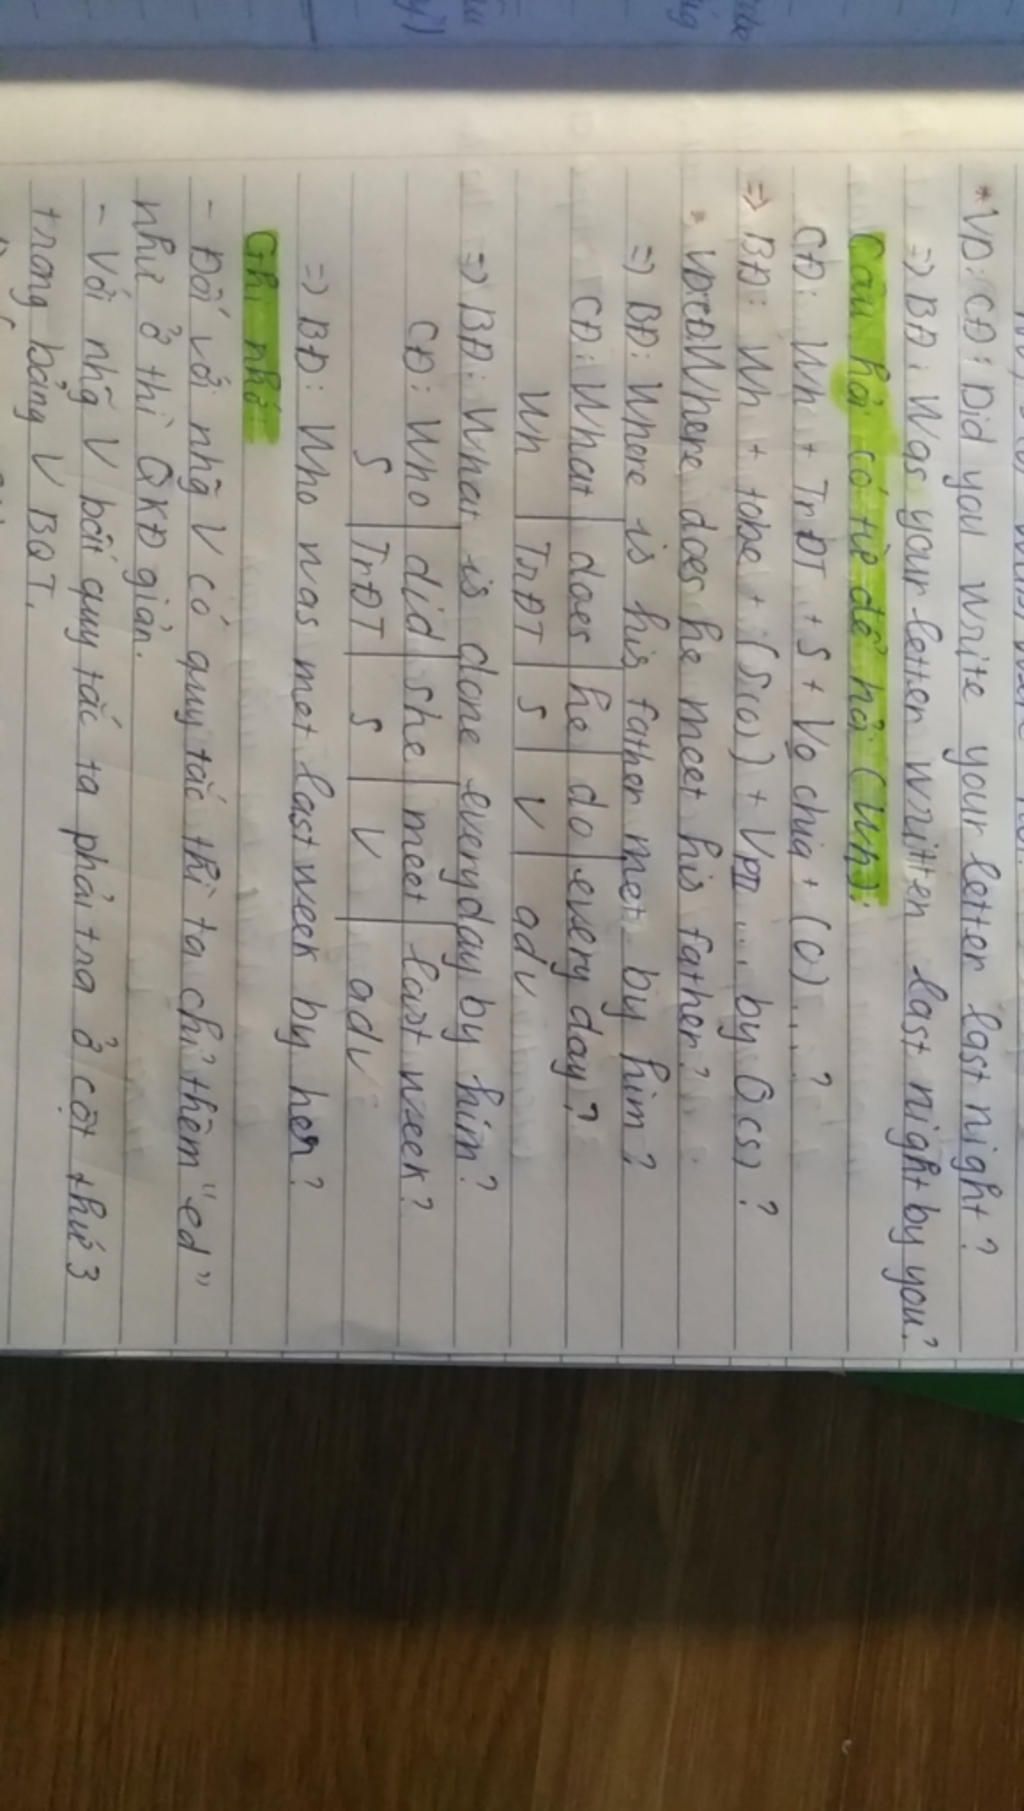 *VD: CĐ: Did you write your letter last night?
=> BĐ: Was your letter written last night by you?
Câu hỏi có từ để hỏi (Wh):
CĐ: Wh + TrĐT + S + Vo chia + (O)...?
=> BĐ: Wh + tobe + (S(O)) + VPII ... by O(S)?
* VD: CĐ Where does he meet his father?
=> BĐ: Where is his father met by him?
CĐ: What | does | he | do | every day?
Wh | TrĐT | S | V | adv
=> BĐ: What is done everyday by him?
CĐ: Who | did | she | meet | last week?
S | TrĐT | S | V | adv
=> BĐ: Who was met last week by her?
Ghi nhớ:
- Đối với nhg̃ V có quy tắc thì ta chỉ thêm "ed"
như ở thì QKĐ giản.
- Với nhg̃ V bất quy tắc ta phải tra ở cột thứ 3
trong bảng V BQT.